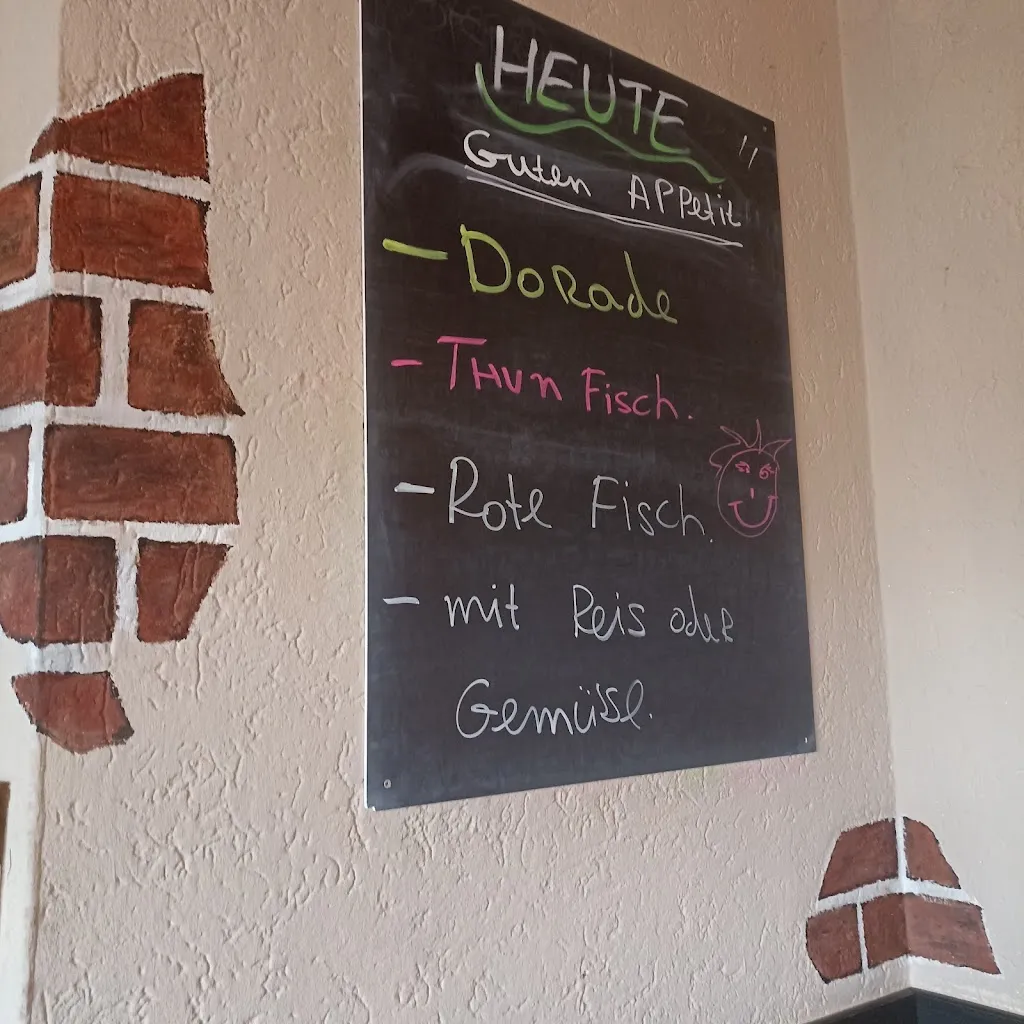 HEUTE
Guten APPetit
- DoRade
- THUn Fisch.
- Rote Fisch.
- mit Reis odeR
Gemüsse.